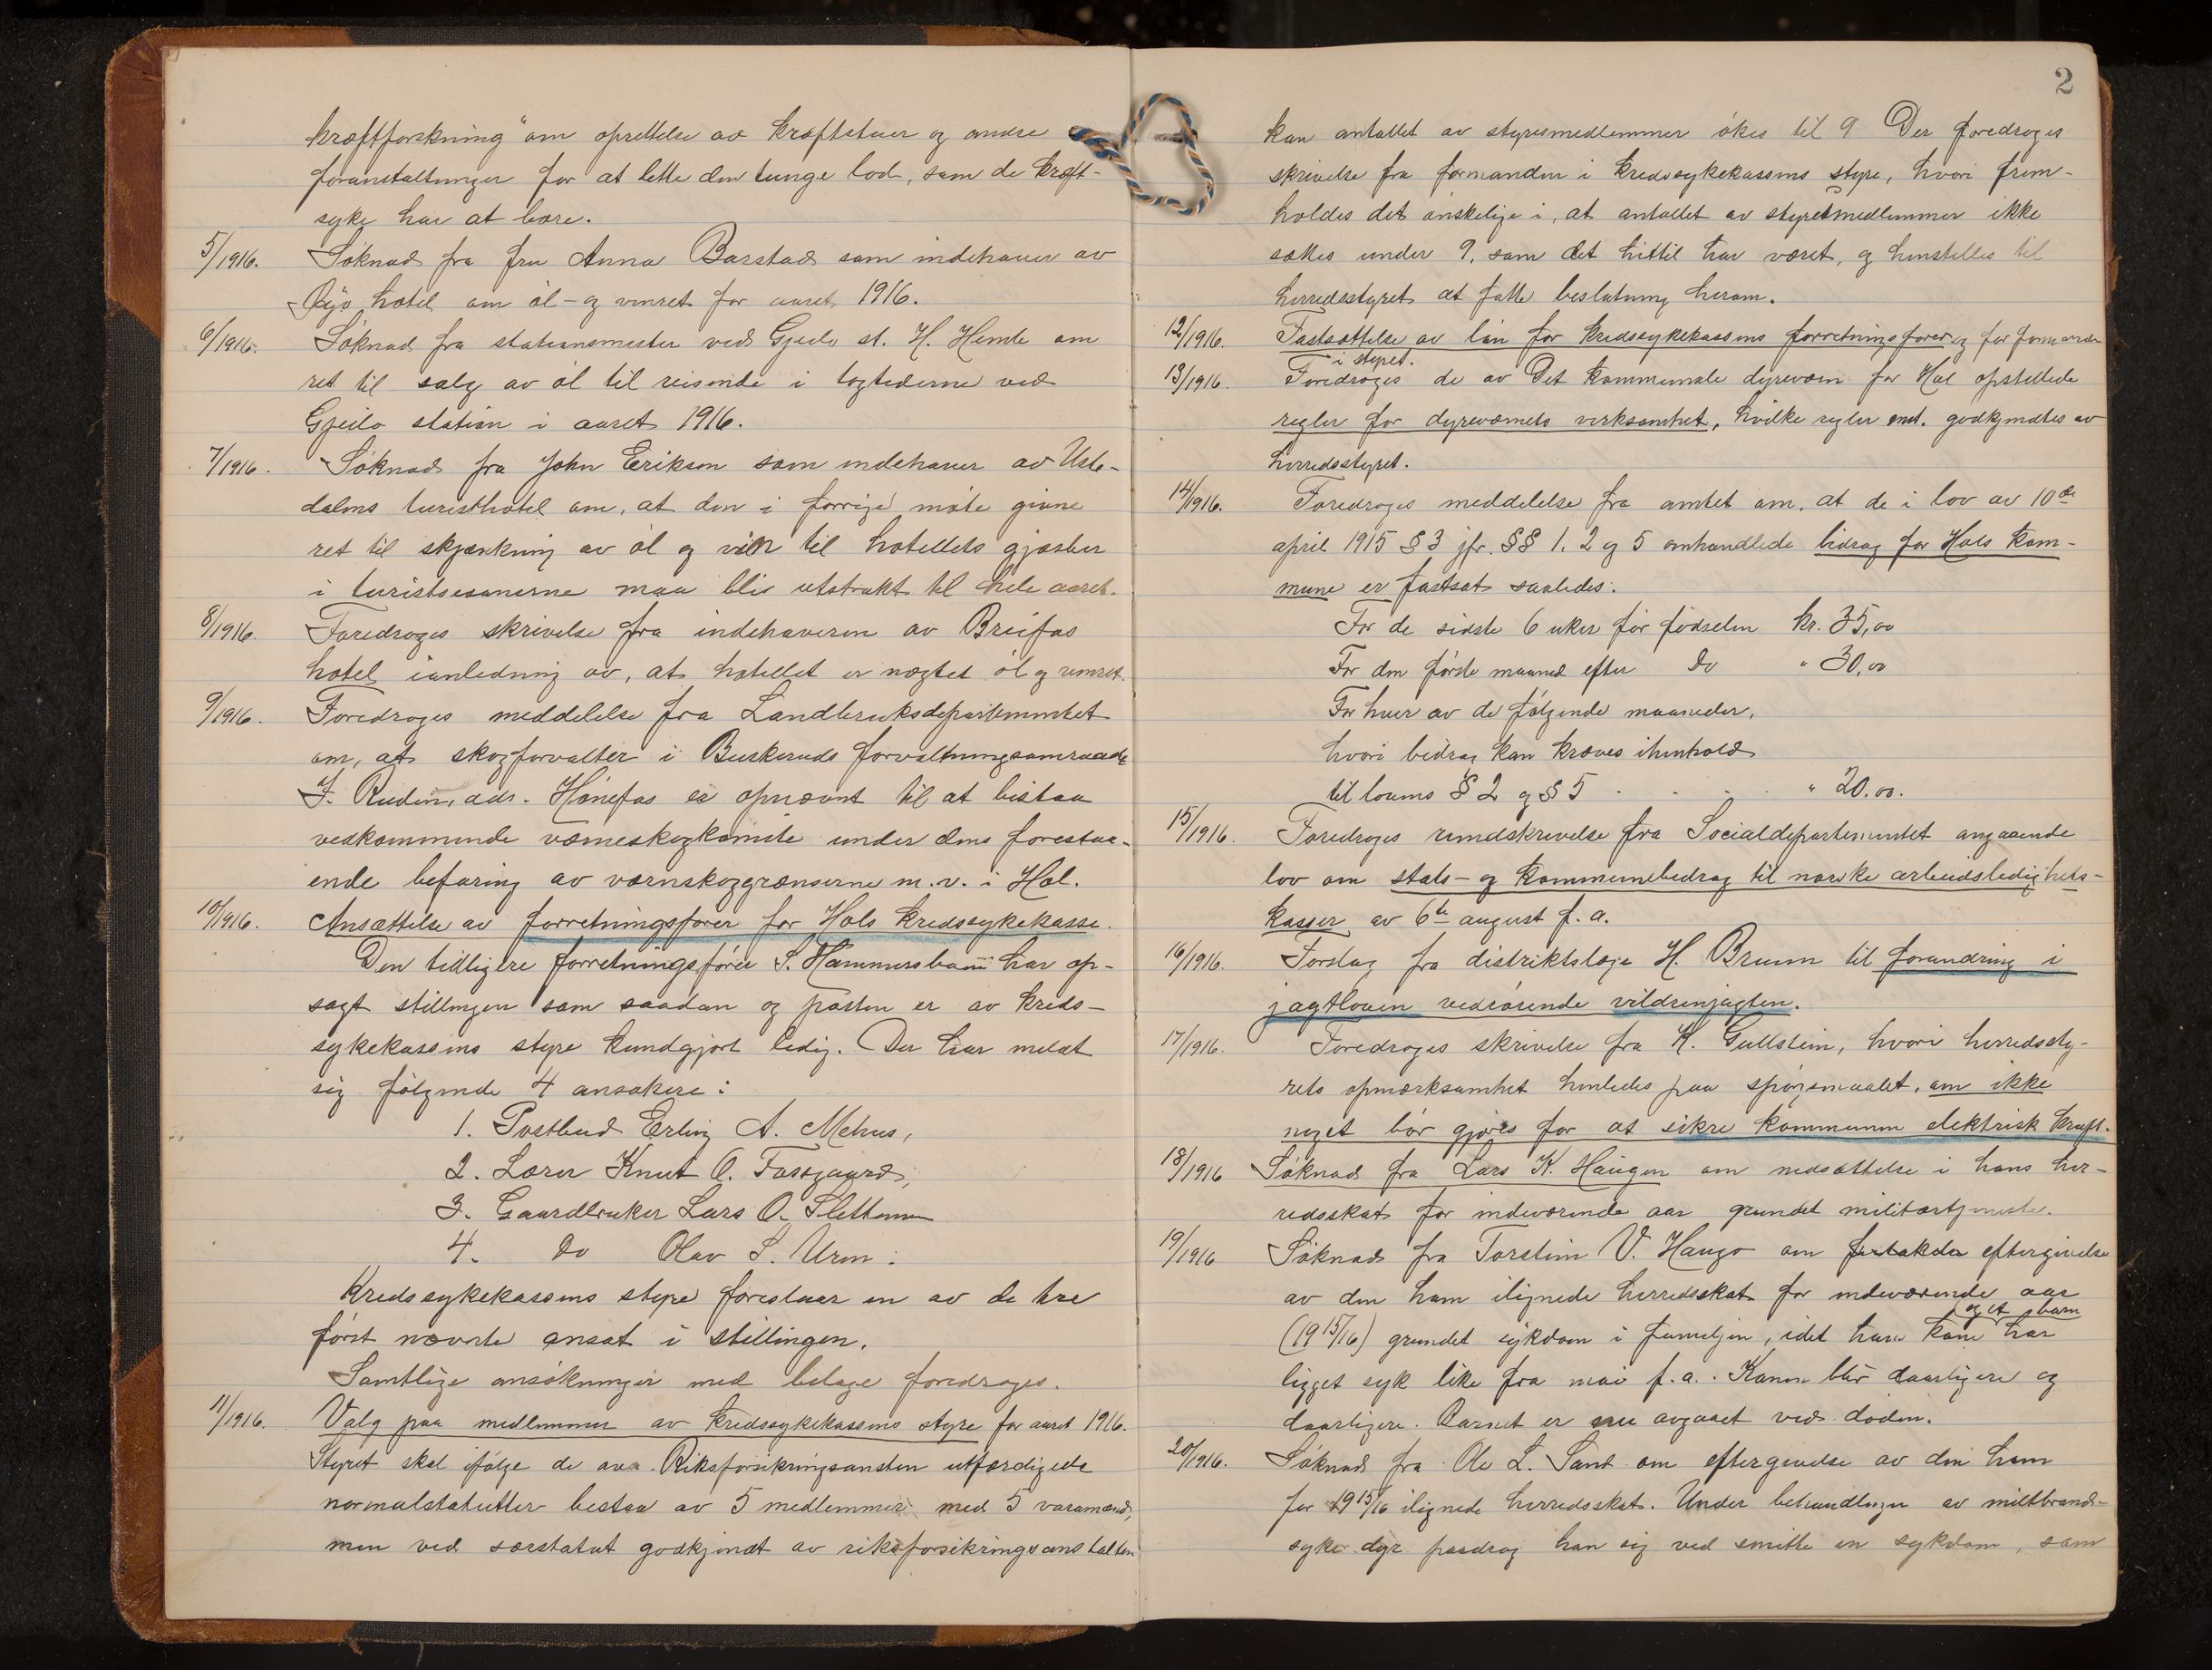 kræftforskning" om oprettelse av kræftstuer og andre
foranstaltninger for at lette den tunge lod, som de kræft-
syke har at bære.
5/1916. Söknad fra fru Anna Barstad som indehaver av
hotel om öl- og vinret for aaret 1916.
6/1916. Söknad fra stationsmester ved Gjeilo st. H. Hemle om
ret til salg av öl til reisende i togtiderne ved
Gjeilo station i aaret 1916.
7/1916. Söknad fra John Erikson som indehaver av Uste-
dalens turisthotel om, at den i forrige möte givne
ret til skjænkning av öl og vin til hotellets gjæster
i turistsesongerne maa bli utstrakt til hele aaret.
8/1916. Foredroges skrivelse fra indehaveren av Breifos
hotel ianledning av, at hotellet er nægtet öl og vinret.
9/1916. Foredroges meddelelse fra Landbruksdepartementet
om, at skogforvalter i Buskeruds forvaltningsomraade
J. Ruden, adr. Hönefos er opnævnt til at bistaa
vedkommende værneskogkomite under dens forestaa-
ende befaring av værnskoggrænserne m.v. i Hol.
10/1916. Ansættelse av forretningsförer for Hols kredssykekasse.
Den tidligere forretningsförer S. Hammersbøen har op-
sagt stillingen som saadan og posten er av kreds-
sykekassens styre kundgjort ledig. Der har meldt
sig fölgende 4 ansökere:
1. Postbud Erling A. Mehus,
2. Lærer Knut O. Fossgaard,
3. Gaardbruker Lars O. Slettemoen
4. Do Olav S. Uren.
Kredssykekassens styre foreslaar en av de tre
först nævnte ansat i stillingen.
Samtlige ansökninger med bilage foredroges.
11/1916. Valg paa medlemmer av kredssykekassens styre for aaret 1916.
Styret skal ifölge de av Riksforsikringsanstalten utfærdigede
normalstatutter bestaa av 5 medlemmer med 5 varamænd,
men ved særstatut godkjendt av riksforsikringsanstalten
2
kan antallet av styresmedlemmer ökes til 9 Der foredroges
skrivelse fra formanden i kredssykekassens styre, hvori frem-
holdes det önskelige i, at antallet av styresmedlemmer ikke
sættes under 9, som det hittil har været, og henstilles til
herredsstyret at fatte beslutning herom.
12/1916. Fastsættelse av lön for kredssykekassens forretningsförer og for formanden
i styret.
13/1916. Foredroges de av Det kommunale dyreværn for Hol opstillede
regler for dyreværnets virksomhet, hvilke regler godkjendtes av
herredsstyret.
14/1916. Foredroges meddelelse fra amtet om, at de i lov av 10de
april 1915 § 3 jfr. §§ 1, 2 og 5 omhandlede bidrag for Hols kom-
mune er fastsat saaledes:
For de sidste 6 uker för födselen kr. 35,00
For den förste maaned efter Do " 30,00
For hver av de fölgende maaneder,
hvori bidrag kan kræves ihenhold
til lovens § 2 og § 5 . . . " 20.00.
15/1916. Foredroges rundskrivelse fra Socialdepartementet angaaende
lov om stats- og kommunebidrag til norske arbeidsledighets-
kasser av 6te august f.a.
16/1916. Forslag fra distriktslæge H. Bruun til forandring i
jagtloven vedrörende vildrenjagten.
17/1916. Foredroges skrivelse fra K. Gullstein, hvori herredssty-
rets opmærksomhet henledes paa spörsmaalet, om ikke
noget bör gjöres for at sikre kommunen elektrisk kraft.
18/1916 Söknad fra Lars K. Haugen om nedsættelse i hans her-
redsskat for indeværende aar grundet militærtjeneste.
19/1916 Söknad fra Torstein V. Haugo om eftergivelse
av den ham ilignede herredsskat for indeværende aar
og et barn
(1915/16) grundet sykdom i familjen, idet hans kone har
ligget syk like fra mai f.a. Konen blir daarligere og
daarligere. Barnet er nu avgaaet ved döden.
20/1916. Söknad fra Ole L. Sand om eftergivelse av den ham
for 1915/16 ilignede herredsskat. Under behandlingen av miltbrand-
syke dyr paadrog han sig ved smitte en sykdom, som